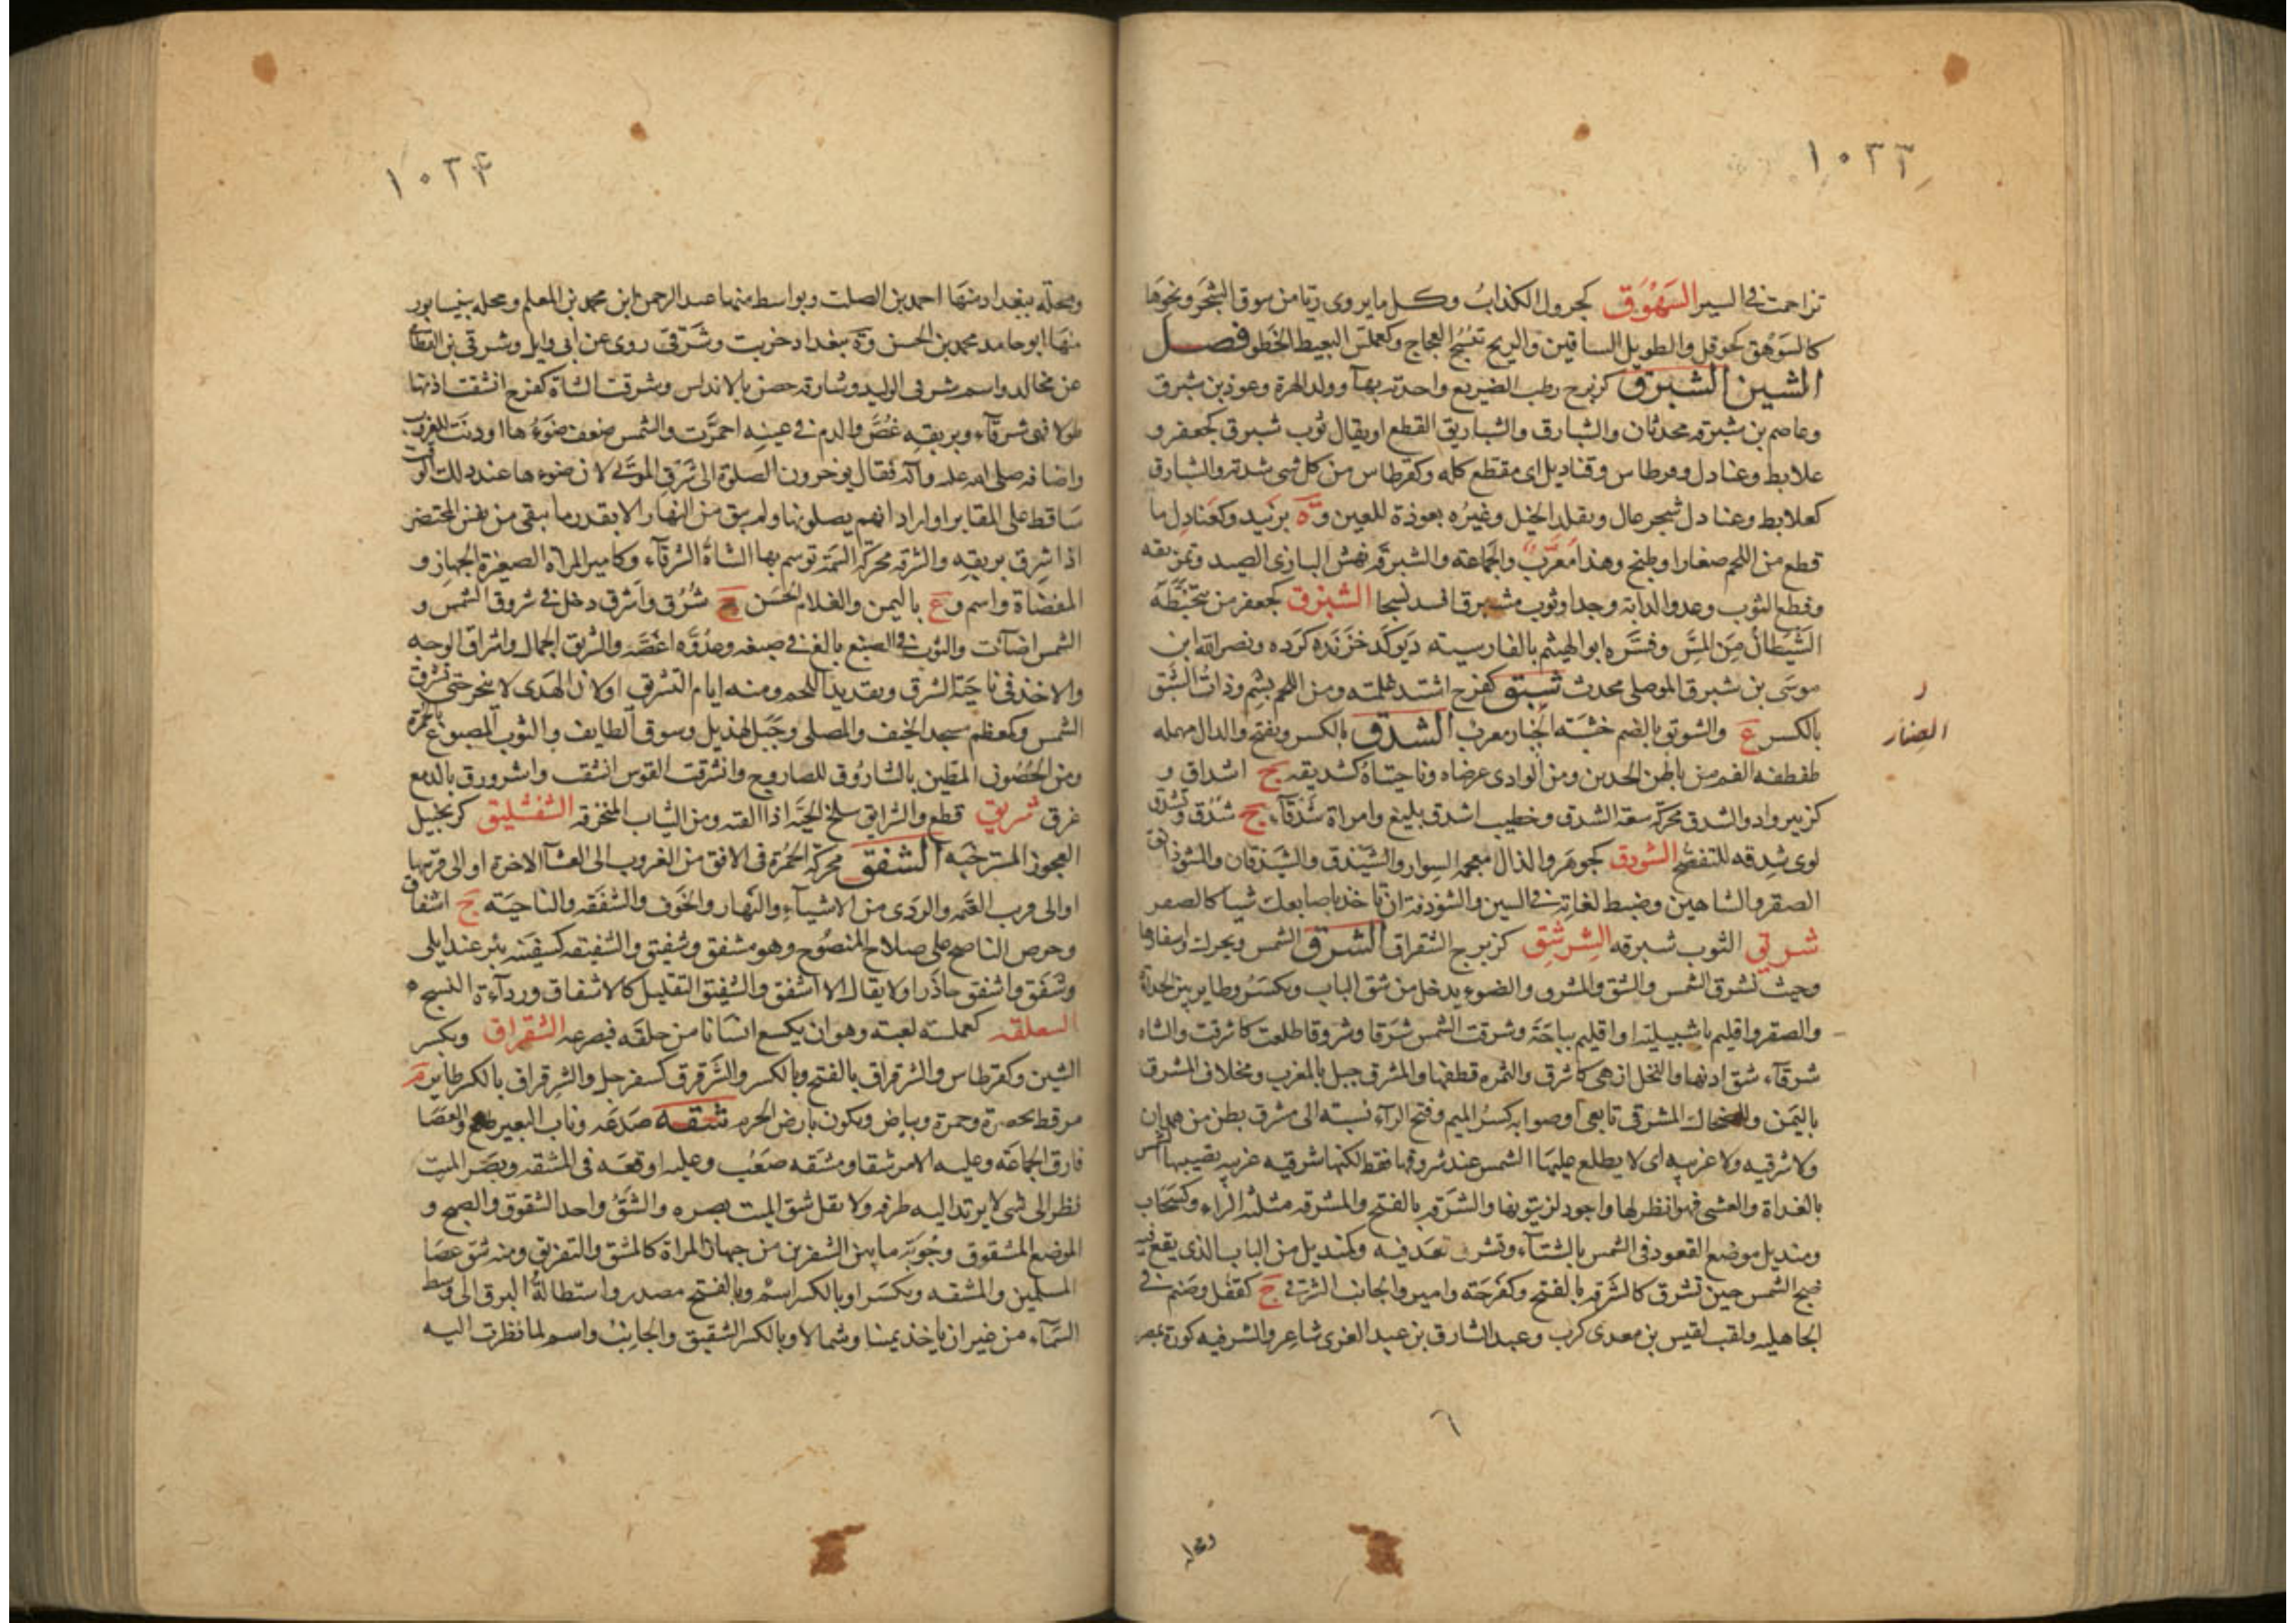 ١٠٣٣
تزاحمت في السير السَهْوَق كجرول الكذابُ وكل ما يروى ريّا من سوق الشجر ونحوها
كالسَوْهَق كحوقل والطويل الساقين والريح تنسج العجاج وكعملّس البعيط الخَطو فصل
الشين الشبرق كزبرج رطب الضريع واحدته بهآ وولد الهرة وعوذ بن شبرق
وعاصم بن شبرقه محدثان والشبارق والشباريق القطع او يقال ثوب شبرق كجعفر و
علابط وعنادل وقرطاس وقناديل اى مقطع كله وكقرطاس من كل شى شدته والشبارق
كعلابط وعنادل شجر عال ويقلد الخيل وغيرُه بعوذة للعين وة بزبَيد وكعَنادِل ما
قطع من اللحم صغارا وطبخ وهذا مُعَرَّبٌ والجَماعَة والشبرقه نهش البازى الصيد وتمزيقه
وقطع الثوب وعدو الدابة وجدا وثوب مشبرق افسد نسجا الشبزق كجعفر من يتخبَّطُه
الشَّيْطانُ مِنَ المَسّ وفسَّره ابو الهيثم بالفارسية ديَوكَد خزَنده كَرَده ونصر الله ابن
موسَى بن شبرق الموصلى محدث شبق كفرح اشتد غلمته ومن اللحم بشِم وذاتُ الشَبَق
بالكسر ع والشوبق بالضم خشبَة الخباز معربْ الشدق بالكسر ويفتح والدال مهمله
ر
الخباز
طفطفة الفم من باطن الخدين ومن الوادى عرضاه وناحيتاهُ كشديقه ج اشداق و
كزبير واد والشدق محركة سعة الشدق وخطيب اشدق بليغ وامراة شَدْقآء ج شُدْق وتشدّق
لوى شِدقه للتفصّح الشوذق كجوهَر والذال معجمه السِوار والشَيْذق والشَيذَقان والشوذانق
الصقر والشاهين وضبط لغاته في السين والشوذقة ان تاخذ باصابعك شيا كالصقر
شرق الثوب شبرقه الشِرشِق كزبرج الشقراق الشرق الشمس ويحرك واسفارها
وحيث تشرق الشمس والشق والمشرق والضوء يدخل من شق الباب ويكسَرُ وطاير بين الحداة
والصقر واقليم باشبيلية او اقليم بباجَة وشرقت الشمس شرَقا وشروقا طلعت كاشرقت والشاه
شرقآء شق اذنها والنخل ازهى كاشرق والثمره قطفها والمشرق جبل بالمغرب ومخلاف المشرق
باليَمَن والضحاك المشرقى تابعى او صوابه كسْرُ الميم وفتح الرآء نسبة الى مشرق بطن من همدان
ولا شرقيه ولا غربيه اى لا يطلع عليهَا الشمس عند شروقها فقط لكنها شرقيه غربيه يصيبها الشمس
بالغداة والعشى فهو انظر لها واجود لزيتونها والشَرَقه بالفتح والمشرقه مثلثه الراء وكسَحَاب
ومنديل موضع القعود فى الشمس بالشتآء وتشرق قعَد فيه وكمنديل من الباب الذى يقع فيه
ضح الشمس حين تشرق كالشَرَقه بالفتح وكفَرَحَة وامير والجانب الشرقى ج كقفل وصَنم في
الجاهليه ولقب لقيس بن معدى كرب وعبد الشارق بن عبد العزى شاعر والشرقيه كورة بمصر
٦
ومحله
١٠٣٤
ومحلّه ببغداد منهَا احمد بن الصلت وبواسط منها عبد الرحمن ابن محمد بن المعلم ومحله بنيسابور
منهَا ابو حامد محمد بن الحسن وة ببغداد خربت وشَرقى روى عن ابى وايل وشرقى بن القطامى
عن مجالد واسم شرقى الوليد وشارقه حصن بالاندلس وشرقت الشاة كفرح انشقت اذنها
طولا فهى شرقآء وبريقه غُصَّ والدم في عينِه احمرَّت والشمس ضعف ضوءُها او دنَت للغروب
واضافه صلى الله عليه وآله فقال يوخرون الصلوة الى شَرَقِ الموتى لان ضوءها عند ذلك الوقت
سَاقط على المقابر او اراد انهم يصلونها ولم يبق من النهار الا بقدر ما يبقى من نفس المحتضر
اذا شرق بريقِه والشرقه محركة السمَة توسم بها الشاةُ الشرقآء وكامير المراة الصغيرة الجهازِ و
المفضَاة واسم وع باليمن والغلام الحُسَن ج شُرُق واشرق دخل في شروق الشمس و
الشمس اضآئت والثوب في الصبغ بالغ في صبغه وعدُوَّه اغَصَّه والشريق الجمال واشراق الوجه
والاخذ فى ناحيَة الشرق وتقديد اللحم ومنه ايام التشريق اولان الهَدى لا ينحر حتى تشرق
الشمس وكمعظم مسجد الخيف والمصلى وجَبَل لهذيل وسوق الطايف والثوب المصبوغ بالحمرة
ومن الحُصُون المطين بالشارُوق للصاروج وانشرقت القوس انشقت واشرورق بالدمع
غرق شربق قطع والشرابق سلخ الحيَّة اذا القته ومن الثياب المتخرقه الشفشليق كزنجبيل
العجوز المسترخيَه الشفق محركة الحُمْرة فى الافق من الغروب الى العشآ الاخرة او الى قربها
او الى قرب العَتمَه والردَى من الاشيآءِ والنَهار والخَوْف والشفَقه والناحيَة ج اشفاق
وحرص الناصح على صلاح المنصُوح وهو مشفق وشفيق والشفيقه كسفينَه بئر عند ابلى
وشفَق واشفق حاذَر او لا يقال الا اشفق والشفيق التقليل كالاشفاق وردآءة النسج ه
السعلقه كعملسه لعبه وهو ان يكسع انسَانا من خلفَه فيصرعه الشقراق ويكسر
الشين وكقرطاس والشرقراق بالفتح وبالكسر والشَّرَقرق كسفرجل والشِرقراق بالكسر طاير م
مرقط بخضرة وحمرة وبياض ويكون بارض الحرم شقه صَدَعَه وناب البعير طلع والعَصَا
فارق الجماعَة وعليه الامر شقا ومشَقه صَعُب وعليه اوقعَه فى المشقه وبصَر الميت
نظر الى شى لا يرتد اليه طرفه ولا يقل شق الميت بصره والشَقُّ واحد الشقوق والصبح و
الموضع المشقوق وجُوبَة ما بين الشفرين من جهاز المراة كالمشق والتفريق ومنه شق عصَا
المسلمين والمشقه ويكسَر او بالكسر اسمْ وبالفتح مصدر واستطالةُ البرق الى وسط
السَمآء من غير ان ياخذ يمينا وشمالا وبالكسر الشقيق والجانِبْ واسم لما نظرت اليه